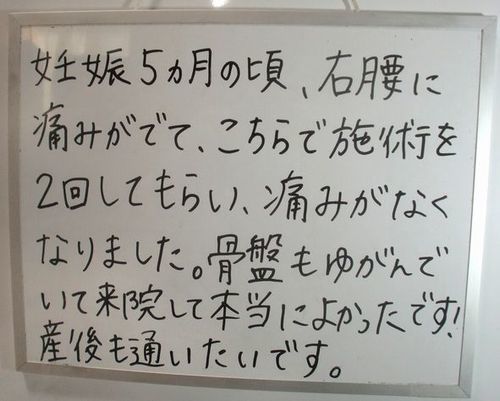 妊娠5ヵ月の頃、右腰に
痛みがでて、こちらで施術を
2回してもらい、痛みがなく
なりました。骨盤もゆがんで
いて来院して本当によかったです!
産後も通いたいです。